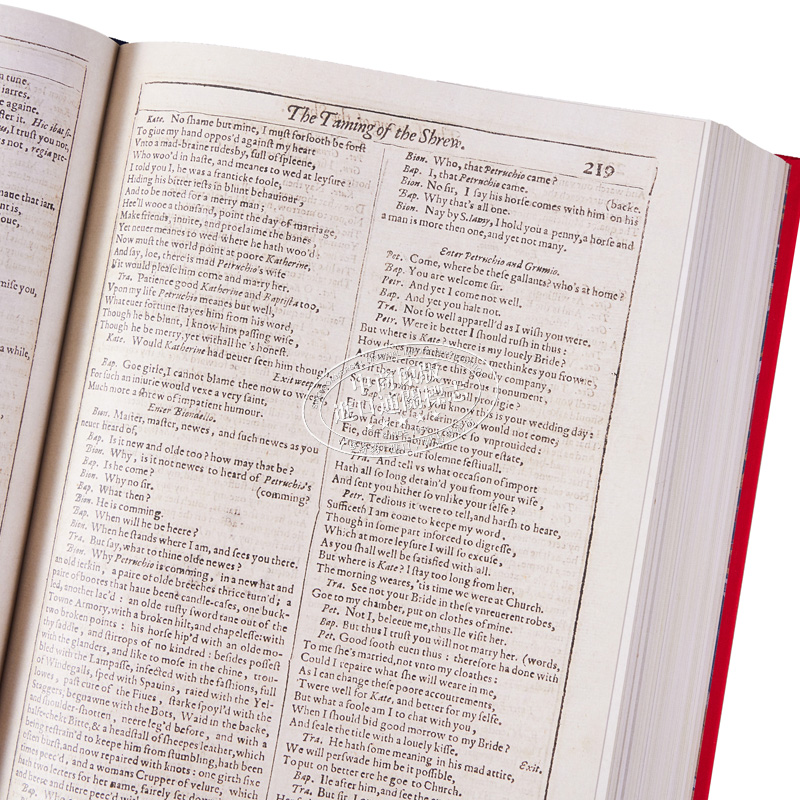 n tune.
iarres.
e againe.
fter it. Hic ibat si-
us, I trust you not,
not, regia pre-
haue that iars.
is,
oue,
mise you,
a while,
The Taming of the Shrew.
219
Kate. No shame but mine, I must forsooth be forst
To giue my hand oppos'd against my heart
Vnto a mad-braine rudesby, full of spleene,
Who woo'd in haste, and meanes to wed at leysure:
I told you I, he was a franticke foole,
Hiding his bitter iests in blunt behauiour,
And to be noted for a merry man:
Hee'll wooe a thousand, point the day of marriage,
Make friends, inuite, and proclaime the banes,
Yet neuer meanes to wed where he hath woo'd:
Now must the world point at poore Katherine,
And say, loe, there is mad Petruchio's wife
If it would please him come and marry her.
Tra. Patience good Katherine and Baptista too,
Vpon my life Petruchio meanes but well,
What euer fortune stayes him from his word,
Though he be blunt, I know him passing wise,
Though he be merry, yet withall he's honest.
Kate. Would Katherine had neuer seen him though.
Exit weeping.
Bap. Goe girle, I cannot blame thee now to weepe,
For such an iniurie would vexe a very saint,
Much more a shrew of impatient humour.
Enter Biondello.
Bion. Master, master, newes, and such newes as you
neuer heard of,
Bap. Is it new and olde too? how may that be?
Bion. Why, is it not newes to heard of Petruchio's
Bap. Is he come? (comming?
Bion. Why no sir.
Bap. What then?
Bion. He is comming.
Bap. When will he be heere?
Bion. When he stands where I am, and sees you there.
Tra. But say, what to thine olde newes?
Bion. Why Petruchio is comming, in a new hat and
an old ierkin, a paire of olde breeches thrice turn'd; a
paire of bootes that haue beene candle-cases, one buck-
led, another lac'd: an olde rusty sword tane out of the
Towne Armory, with a broken hilt, and chapelesse: with
two broken points: his horse hip'd with an olde mo-
thy saddle, and stirrops of no kindred: besides possest
with the glanders, and like to mose in the chine, trou-
bled with the Lampasse, infected with the fashions, full
of Windegalls, sped with Spauins, raied with the Yel-
lowes, past cure of the Fiues, starke spoyl'd with the
Staggers, begnawne with the Bots, Waid in the backe,
and shoulder-shotten, neere leg'd before, and with a
halfe-chekt Bitte, & a headstall of sheepes leather, which
being restrain'd to keepe him from stumbling, hath been
often burst, and now repaired with knots: one girth sixe
times peec'd, and a womans Crupper of velure, which
hath two letters for her name, fairely set down
and heere and there peec'd with
Bap. Who
Bion. Who, that Petruchio came?
Bap. I, that Petruchio came.
Bion. No sir, I say his horse comes with him on his
Bap. Why that's all one. (backe.
Bion. Nay by S. Iamy, I hold you a penny, a horse and
a man is more then one, and yet not many.
Enter Petruchio and Grumio.
Pet. Come, where be these gallants? who's at home?
Bap. You are welcome sir.
Petr. And yet I come not well.
Bap. And yet you halt not.
Tra. Not so well apparell'd as I wish you were.
Petr. Were it better I should rush in thus:
But where is Kate? where is my louely Bride?
How does my father? gentles methinkes you frowne,
And wherefore gaze this goodly company,
As if they saw some wondrous monument,
prodigie?
you know this is your wedding day:
fearing you would not come,
sadder that you come so vnprouided:
Fie, doff this habit, shame to your estate,
An eye-sore to our solemne festiuall.
Tra. And tell vs what occasion of import
Hath all so long detain'd you from your wife,
And sent you hither so vnlike your selfe?
Petr. Tedious it were to tell, and harsh to heare,
Sufficeth I am come to keepe my word,
Though in some part inforced to digresse,
Which at more leysure I will so excuse,
As you shall well be satisfied with all.
But where is Kate? I stay too long from her,
The morning weares, 'tis time we were at Church.
Tra. See not your Bride in these vnreuerent robes,
Goe to my chamber, put on clothes of mine.
Pet. Not I, beleeue me, thus Ile visit her.
Bap. But thus I trust you will not marry her. (words,
Pet. Good sooth euen thus: therefore ha done with
To me she's married, not vnto my cloathes:
Could I repaire what she will weare in me,
As I can change these poore accoutrements,
'Twere well for Kate, and better for my selfe.
But what a foole am I to chat with you,
When I should bid good morrow to my Bride?
And seale the title with a louely kisse. Exit.
Tra. He hath some meaning in his mad attire,
We will perswade him be it possible,
To put on better ere he goe to Church.
Bap. Ile after him, and see the eu
Tra. But sir, I